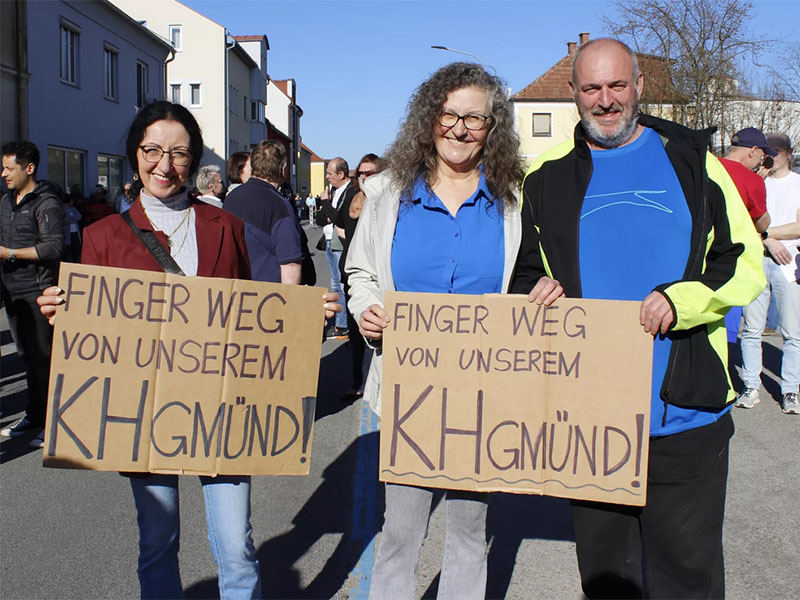 FINGER WEG
VON UNSEREM
KHGMÜND!
FINGER WEG
VON UNSEREM
KHGMÜND!